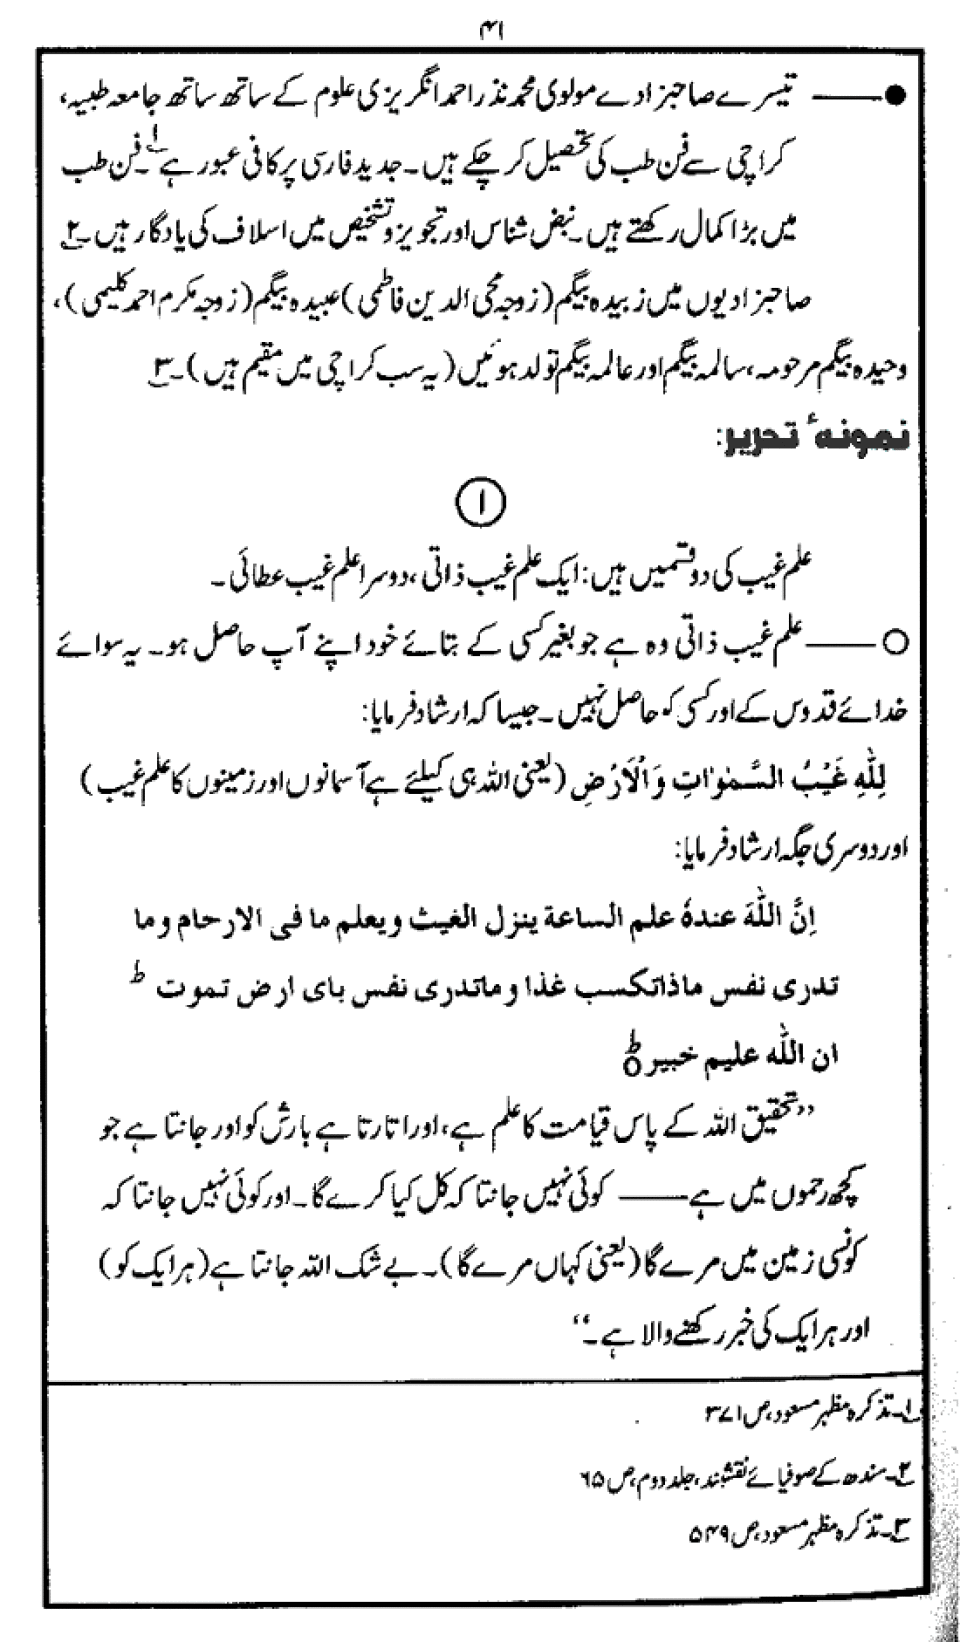 ۴۱
●—— تیسرے صاحبزادے مولوی محمد نذر احمد انگریزی علوم کے ساتھ ساتھ جامعہ طبیہ،
کراچی سے فن طب کی تحصیل کر چکے ہیں۔ جدید فارسی پر کافی عبور ہے ۱؎۔ فن طب
میں بڑا کمال رکھتے ہیں۔ نبض شناس اور تجویز و تشخیص میں اسلاف کی یادگار ہیں۔ ۲؎
صاحبزادیوں میں زبیدہ بیگم (زوجہ محی الدین فاطمی) عبیدہ بیگم (زوجہ مکرم احمد کلیمی)،
وحیدہ بیگم مرحومہ، سالمہ بیگم اور عالمہ بیگم تولد ہوئیں (یہ سب کراچی میں مقیم ہیں)۔ ۳؎
نمونۂ تحریر:
۱
علم غیب کی دو قسمیں ہیں: ایک علم غیب ذاتی، دوسرا علم غیب عطائی۔
○—— علم غیب ذاتی وہ ہے جو بغیر کسی کے بتائے خود اپنے آپ حاصل ہو۔ یہ سوائے
خدائے قدوس کے اور کسی کو حاصل نہیں۔ جیسا کہ ارشاد فرمایا:
لِلّٰهِ غَيْبُ السَّمٰوٰتِ وَالْاَرْضِ (یعنی اللہ ہی کیلئے ہے آسمانوں اور زمینوں کا علم غیب)
اور دوسری جگہ ارشاد فرمایا:
اِنَّ اللّٰهَ عندهٗ علم الساعة ینزل الغیث ویعلم ما فی الارحام وما
تدری نفس ماذاتکسب غذا وماتدری نفس بای ارض تموت ط
ان اللّٰه علیم خبیر ○ط
’’تحقیق اللہ کے پاس قیامت کا علم ہے، اور اتارتا ہے بارش کو اور جانتا ہے جو
کچھ رحموں میں ہے—— کوئی نہیں جانتا کہ کل کیا کرے گا۔ اور کوئی نہیں جانتا کہ
کونسی زمین میں مرے گا (یعنی کہاں مرے گا)۔ بے شک اللہ جانتا ہے (ہر ایک کو)
اور ہر ایک کی خبر رکھنے والا ہے۔‘‘
۱؎۔ تذکرہ مظہر مسعود، ص ۳۷۱
۲؎۔ سندھ کے صوفیائے نقشبند، جلد دوم، ص ۶۵
۳؎۔ تذکرہ مظہر مسعود، ص ۵۴۹